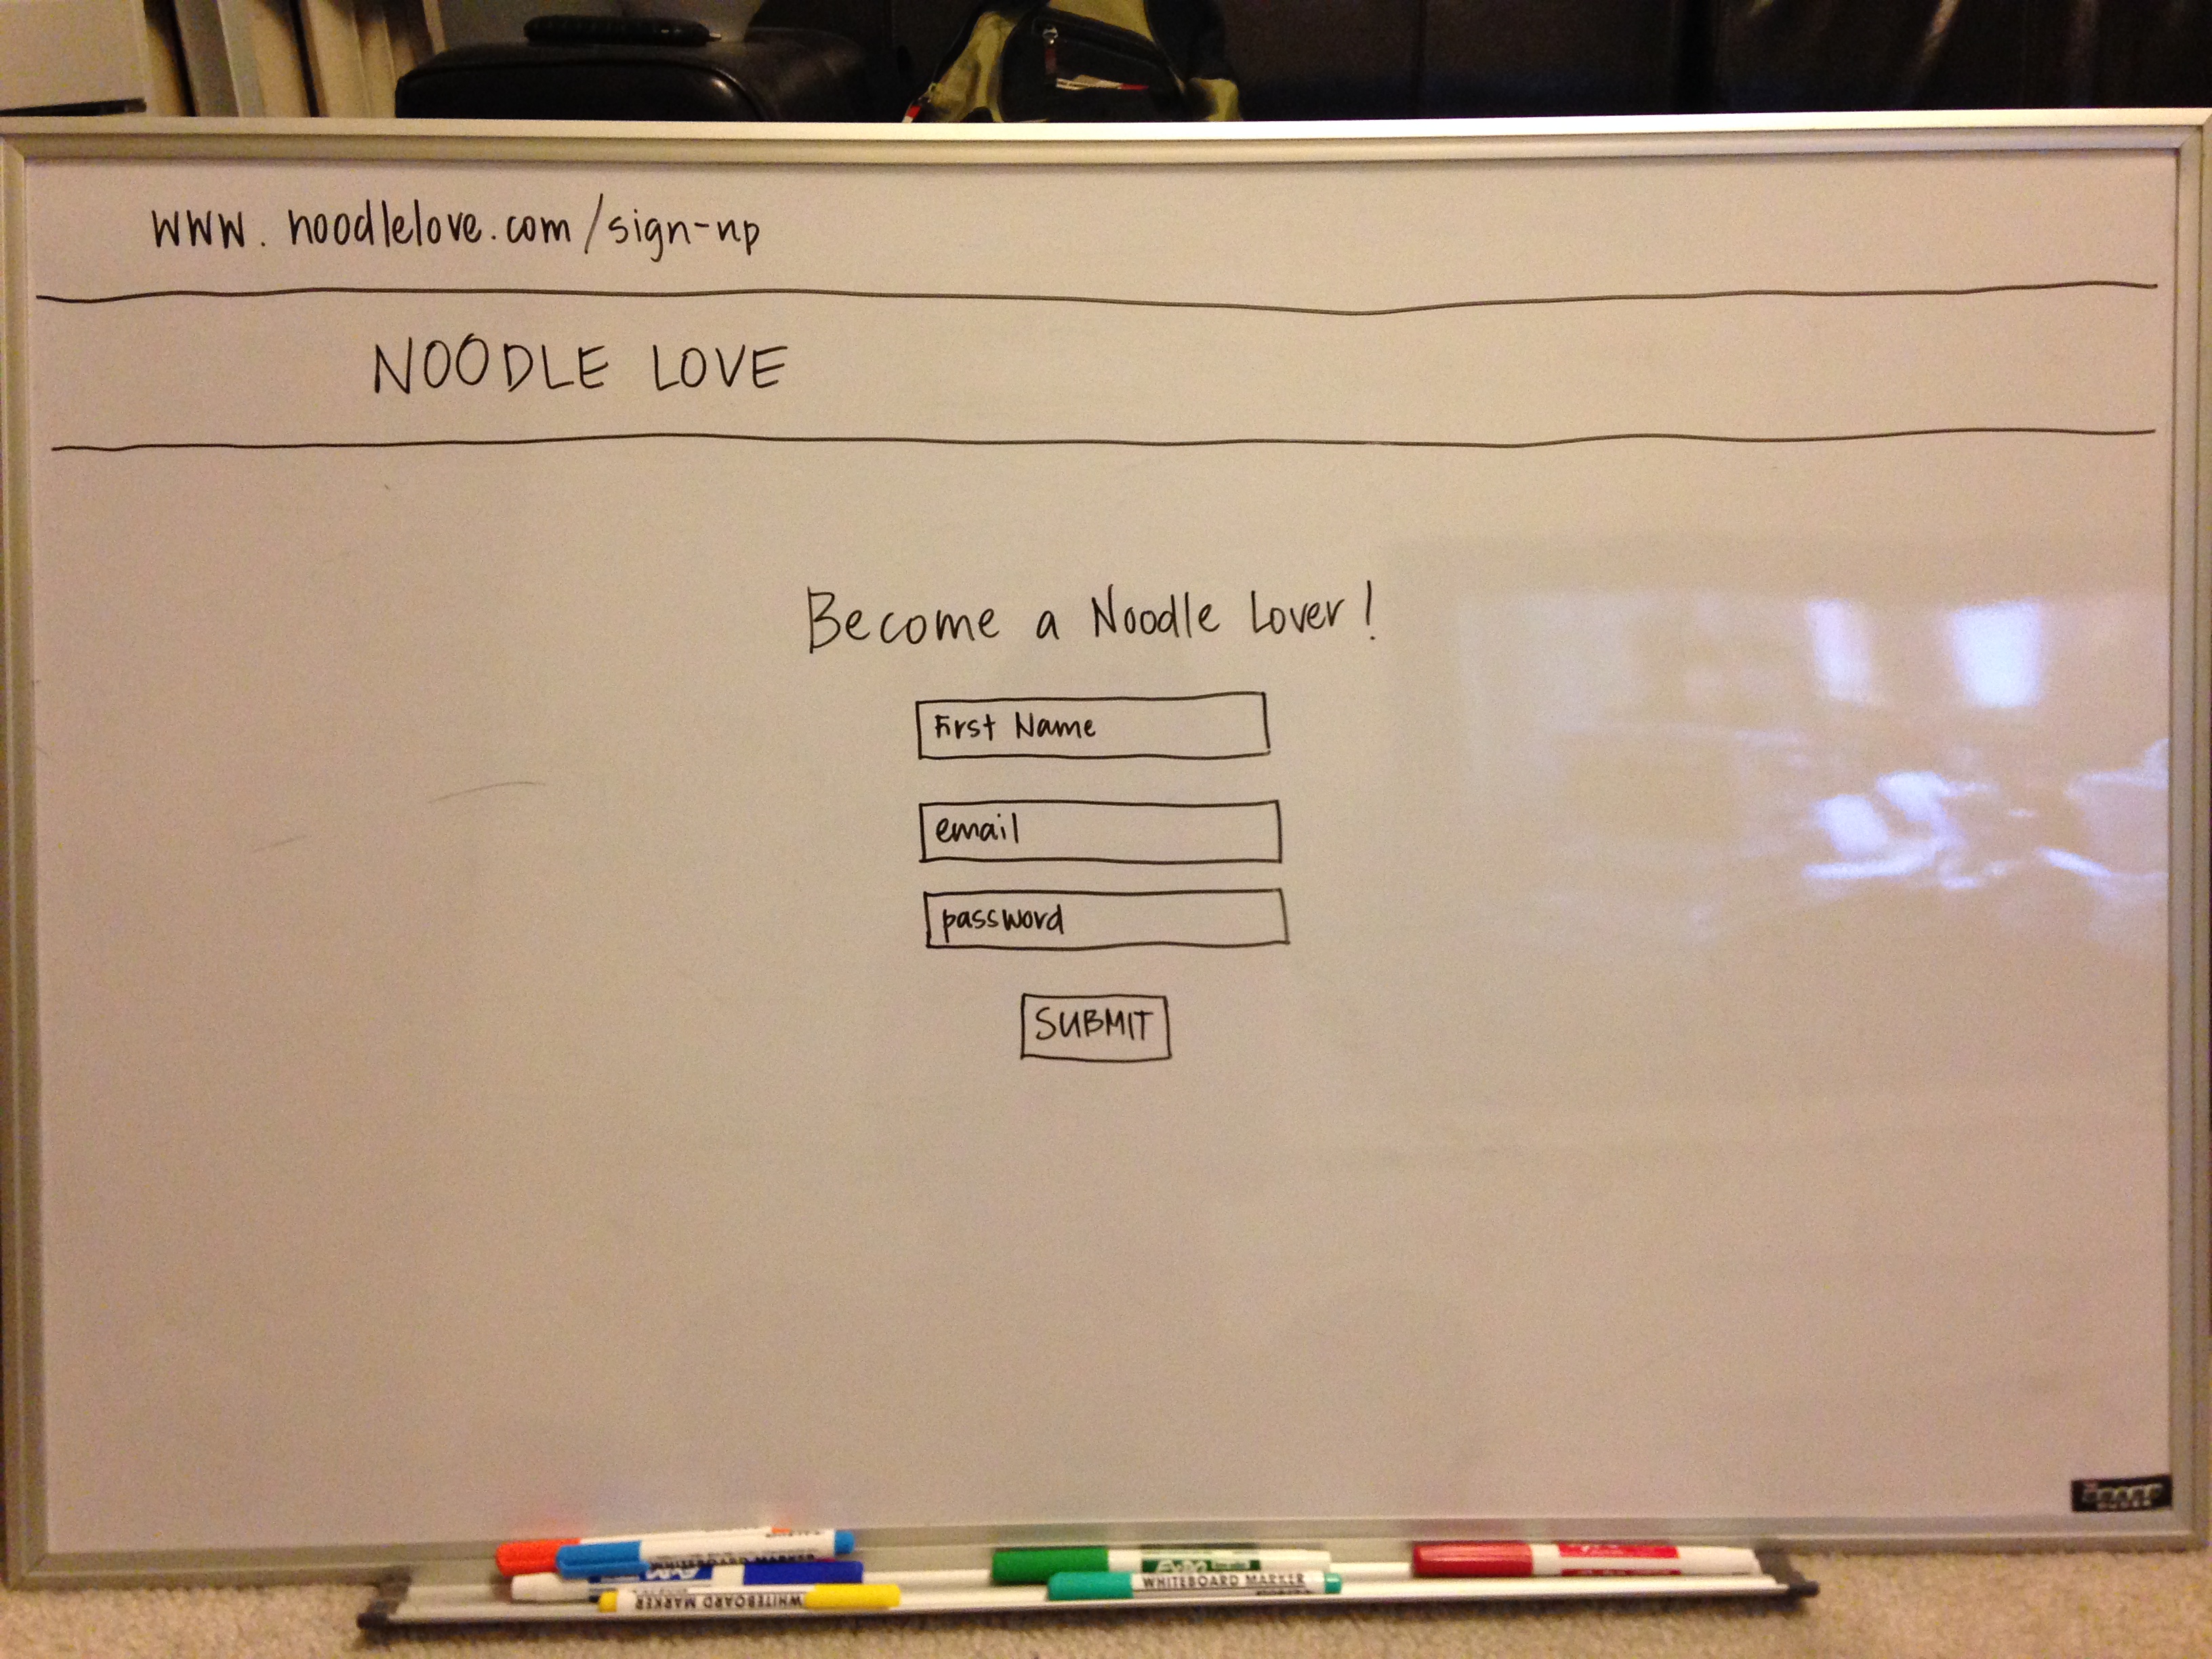 www.noodlelove.com/sign-up
NOODLE LOVE
Become a Noodle Lover!
First Name
email
password
SUBMIT
WHITEBOARD MARKER
WHITEBOARD MARKER